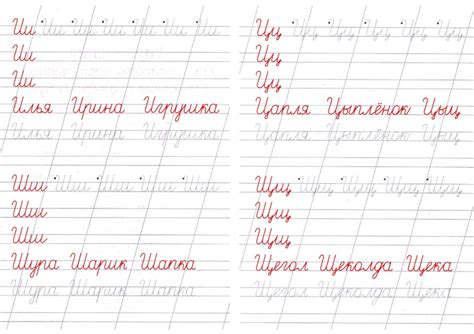 Ии Ии Ии Ии Ии Ии
Ии
Ии
Илья Ирина Игрушка
Илья Ирина Игрушка
Цц Цц Цц Цц Цц Цц
Цц
Цц
Цапля Цыплёнок Цыц
Цапля Цыплёнок Цыц
Шш Шш Шш Шш Шш
Шш
Шш
Шура Шарик Шапка
Шура Шарик Шапка
Щщ Щщ Щщ Щщ Щщ
Щщ
Щщ
Щегол Щеколда Щека
Щегол Щеколда Щека